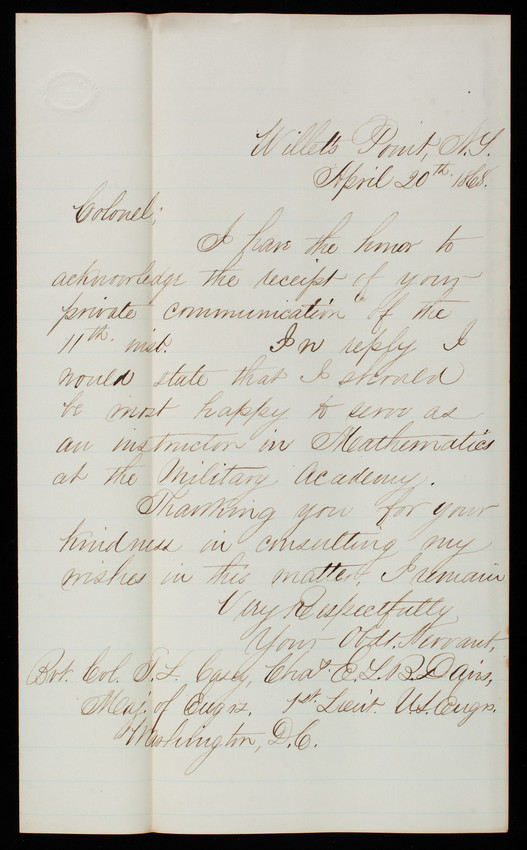 Willets Point, N.Y.
April 20th. 1868.
Colonel;
I have the honor to
acknowledge the receipt of your
private "communication" of the
11th. inst. In reply I
would state that I should
be most happy to serve as
an instructor in Mathematics
at the Military Academy.
Thanking you for your
kindness in consulting my
wishes in this matter, I remain
Very Respectfully
Your Obdt. Servant,
Bvt. Col. T. L. Casey, Chas. E. L. B. Davis,
Maj. of Engrs. 1st. Lieut. U.S. Engrs.
Washington, D.C.